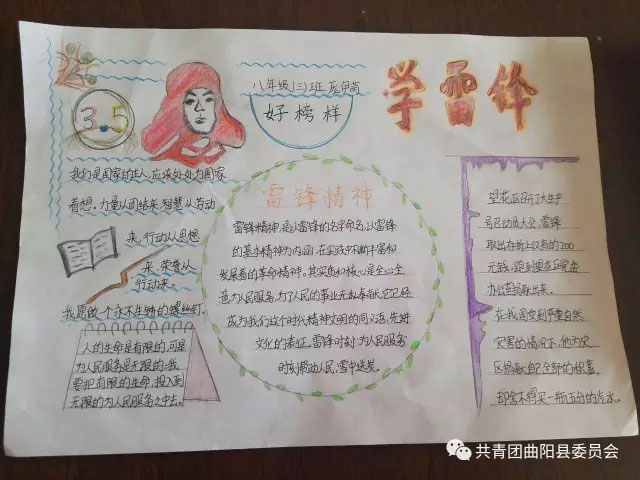 学雷锋
八年级(三)班
好榜样
3.5
我们是国家的主人,应该处处为国家
着想。力量从团结来,智慧从劳动
来,行动从思想
来,荣誉从
行动来。
我愿做一个永不生锈的螺丝钉。
人的生命是有限的,可是
为人民服务是无限的,我
要把有限的生命,投入到
无限的为人民服务之中去。
雷锋精神
雷锋精神,是以雷锋的名字命名,以雷锋
的基本精神为内涵,在实践中不断丰富和
发展着的革命精神。其实质和核心是全心全
意为人民服务,为了人民的事业无私奉献,它已经
成为我们这个时代精神文明的同义语,先进
文化的表征,雷锋时刻为人民服务
时刻帮助人民,雪中送炭。
望花区召开了大生产
号召动员大会,雷锋
取出存折上仅有的200
元钱,跑到望花区党委
办公室捐献出来。
在我国受到严重自然
灾害的情况下,他为灾
区捐献自己全部的积蓄,
却舍不得买一瓶五分的汽水。
共青团曲阳县委员会